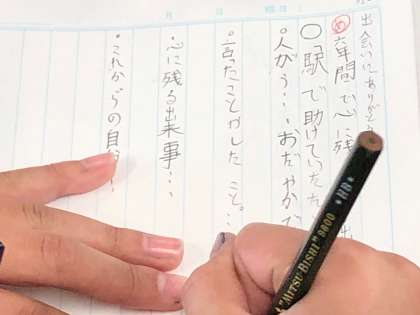 月
日
曜日
出会いにありがとう
め 六年間で心に残
○「駅で助けていた
・人がう…おだやかで
・言ったことやしたこと。…
・心に残る出来事…
・これからの自
"MITSU-BISHI" 9800 *HB*